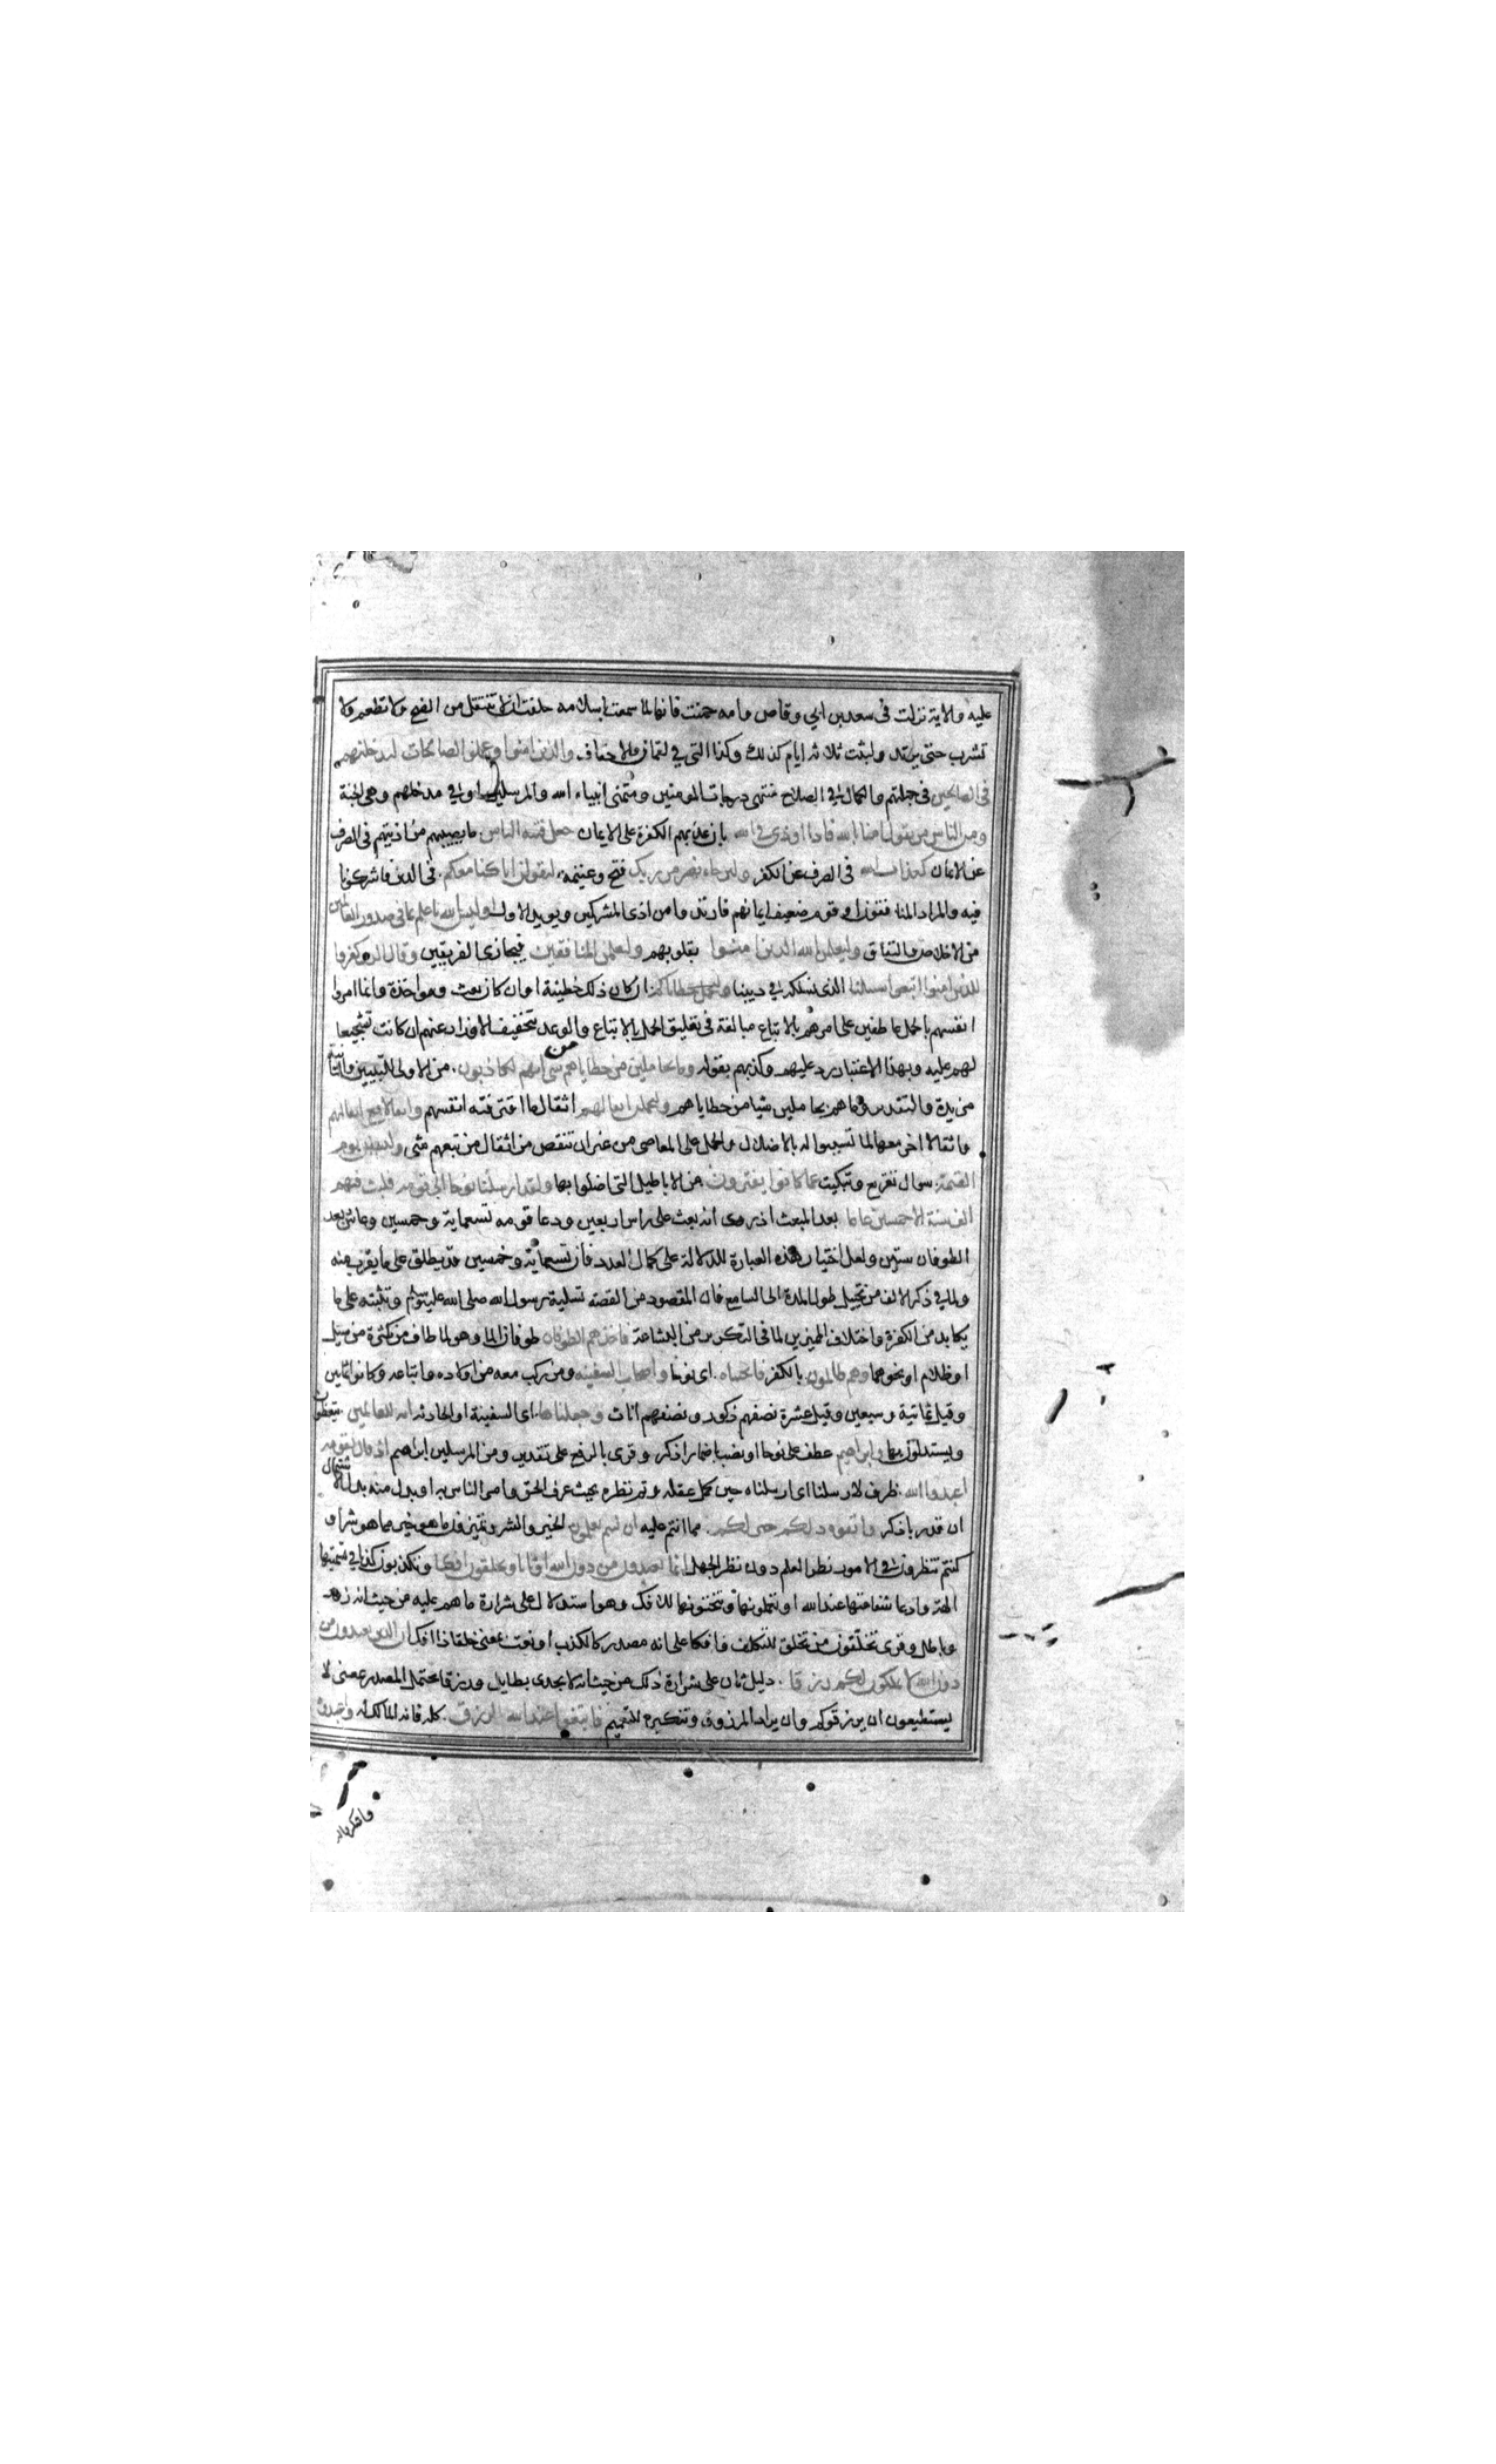 عليه والاية نزلت فى سعد بن ابي وقاص وامه حمنت فانها لما سمعت باسلامه حلفت انها لا تنتقل من الضح ولا تطعم ولا
تشرب حتى يرتد ولبثت ثلاثه ايام كذلك وكذا التي في لقمان والاحقاف والذين امنوا وعملوا الصالحات لندخلنهم
فى الصالحين فى جملتهم والكمال في الصلاح منتهى درجات المومنين ومتمنى انبياء الله والمرسلين او في مدخلهم وهى الجنة
ومن الناس من يقول امنا بالله فاذا اوذى في الله بان عذبهم الكفرة على الايمان جعل فتنة الناس ما يصيبهم من اذيتهم فى الصرف
عن الايمان كعذاب الله فى الصرف عن الكفر ولين جاء نصر من ربك فتح وغنيمه ليقولن انا كنا معكم فى الدين فاشركونا
فيه والمراد المنافقون او قوم ضعيف ايمانهم فارتدوا من اذى المشركين ويويد الاول اوليس الله باعلم بما فى صدور العالمين
من الاخلاص والنفاق وليعلمن الله الذين امنوا بقلوبهم وليعلمن المنافقين فيجازى الفريقين وقال الذين كفروا
للذين امنوا اتبعوا سبيلنا الذى نسلكه في ديننا ولنحمل خطاياكم ان كان ذلك خطيئة او ان كان بعث ومواخذة وانما امروا
انفسهم بالحمل عاطفين على امرهم بالاتباع مبالغة فى تعليق الحمل بالاتباع والوعد بتخفيف الاوزار عنهم ان كانت تشجيعا
لهم عليه وبهذا الاعتبار رد عليهم وكذبهم بقوله وما هم بحاملين من خطاياهم من شى انهم لكاذبون من الاولى للتبيين والثانية
مزيدة والتقدير وما هم بحاملين شيا من خطاياهم وليحملن اثقالهم اثقال ما اقترفته انفسهم واثقالا مع اثقالهم
واثقالا اخر معها لما تسببوا له بالاضلال والحمل على المعاصى من غير ان تنقص من اثقال من تبعهم شى وليسئلن يوم
القيمة سوال تقريع وتبكيت عما كانوا يفترون من الاباطيل التى اضلوا بها ولقد ارسلنا نوحا الى قومه فلبث فيهم
الف سنة الا خمسين عاما بعد المبعث اذ روى انه بعث على راس اربعين ودعا قومه تسعماية وخمسين وعاش بعد
الطوفان ستين ولعل اختيار هذه العبارة للدلالة على كمال العدد فان تسعماية وخمسين قد يطلق على ما يقرب منه
ولما في ذكر الالف من تخييل طول المدة الى السامع فان المقصود من القصه تسلية رسول الله صلى الله عليه وسلم وتثبته على ما
يكابد من الكفرة واختلاف المميزين لما فى التكرير من البشاعة فاخذهم الطوفان طوفان الما وهو لما طاف من كثرة من سيل
او ظلام او نحوهما وهم ظالمون بالكفر فانجيناه اى نوحا واصحاب السفينه ومن ركب معه من اولاده واتباعه وكانوا ثمانين
وقيل ثمانية وسبعين وقيل عشرة نصفهم ذكور ونصفهم اناث وجعلناها اى السفينة او الحادثه اية للعالمين يتعظون
ويستدلون بها وابراهيم عطف على نوحا او نصب باضمار اذكر وقرى بالرفع على تقدير ومن المرسلين ابراهيم اذ قال لقومه
اعبدوا الله ظرف لارسلنا اى ارسلناه حين كمل عقله وتم نظره بحيث عرف الحق وامر الناس به او بدل منه بدل الاشتمال
ان قدر باذكر واتقوه ذلكم خير لكم مما انتم عليه ان كنتم تعلمون الخير والشر وتميزون ما هو خير مما هو شر او
كنتم تنظرون في الامور نظر العلم دون نظر الجهل انما تعبدون من دون الله اوثانا وتخلقون افكا وتكذبون كذبا في تسميتها
الهة وادعا شفاعتها عند الله او تعملونها وتنحتونها للافك وهو استدلال على شرارة ما هم عليه من حيث انه زور
وباطل وقرى تخلقون من تخلق للتكلف وافكا على انه مصدر كالكذب او نعت بمعنى خلقا ذا افك ان الذين تعبدون من
دون الله لا يملكون لكم رزقا دليل ثان على شرارة ذلك من حيث انه لا يجدى بطايل ورزقا يحتمل المصدر بمعنى لا
يستطيعون ان يرزقوكم وان يراد المرزوق وتنكيره للتعميم فابتغوا عند الله الرزق كله فانه المالك له واعبدوه